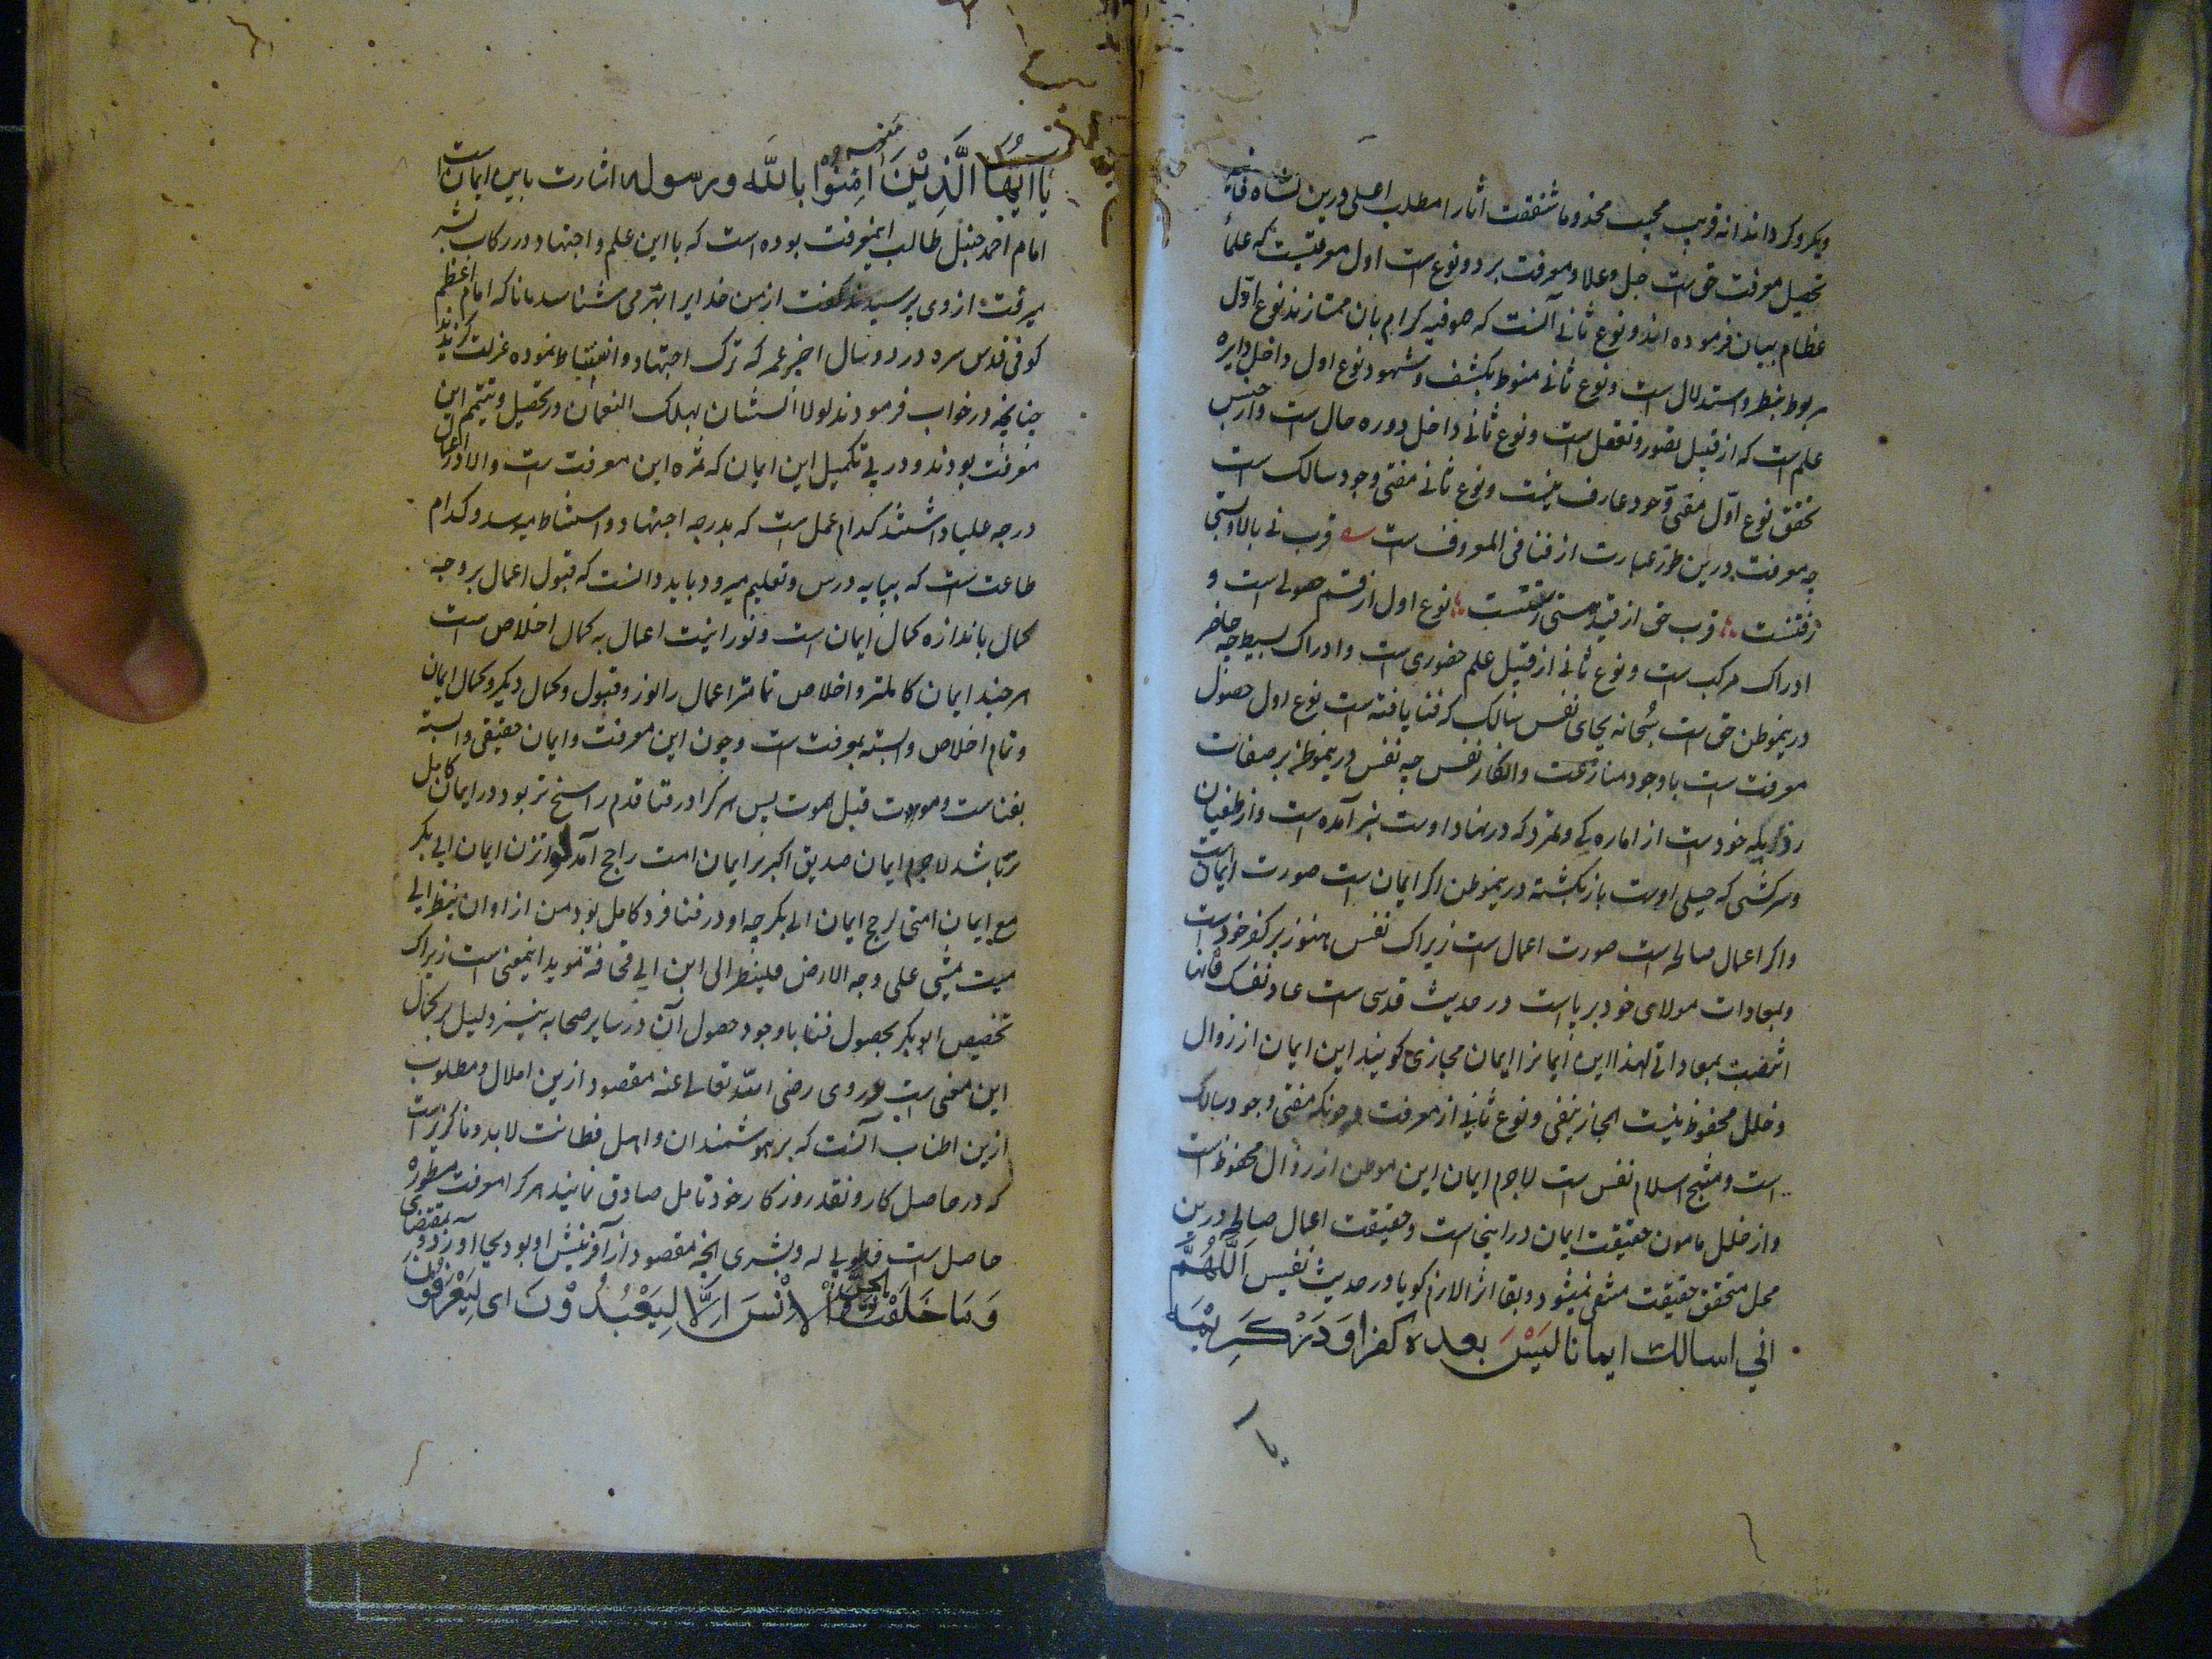 ویکرو کرداند انه قریب مجیب مخدوما شفقت آثارا مطلب اعلی درین نشاه فانیه
تحصیل معرفت حق است جل وعلا و معرفت بر دو نوع است اول معرفتیست که علماء
عظام ببیان فرموده اند و نوع ثانی آنست که صوفیه کرام بان ممتازند نوع اوّل
مربوط بنظر و استدلال است و نوع ثانی منوط بکشف و شهود نوع اول داخل دایره
علم است که از قبیل تصور و تعقل است و نوع ثانی داخل دوره حال است و از جنس
تحقق نوع اوّل مفنی وجود عارف نیست و نوع ثانی مفنی وجود سالک است
چه معرفت درین طرز عبارت از فنا فی المعروف است قرب نی بالا و پستی
رفتنست قرب حق از قید هستی رستنست نوع اول از قسم حصولی است و
ادراک مرکب است و نوع ثانی از قبیل علم حضوری است و ادراک بسیط چه حاضر
درینموطن حق است سُبحانه بجای نفس سالک که فنا یافته است نوع اول حصول
معرفت است با وجود منازعت و انکار نفس چه نفس درینموطن بر صفات
رذیله خود است از اماره کی و تمرد که در نهاد اوست نبر آمده است و از طغیان
و سرکشی که جبلی اوست باز نکشته درینموطن اکر ایمان است صورت ایمان است
و اکر اعمال صالحه است صورت اعمال است زیراک نفس هنوز بر کفر خود است
و بمعادات مولای خود بر پاست در حدیث قدسی است عاد نفسک فانها
انتصبت بمعاداتی لهذا این ایمانرا ایمان مجازی کویند این ایمان از زوال
و خلل محفوظ نیست المجاز ینفی و نوع ثانی از معرفت چونکه مفنی وجود سالک
است و منتج اسلام نفس است لاجرم ایمان این موطن از زوال محفوظ است
و از خلل مامون حقیقت ایمان در اینجاست و حقیقت اعمال صالحه درین
محل متحقق حقیقت منتفی نمیشود و بقا اثرا لازم کویا در حدیث نفیس اَللّٰهُمَّ
انی اسالک ایمانا لیْسَ بعده کفر اوَ دَرْ کَرِیْمَه
یَا اَیُّهَا الَّذِیْنَ اٰمَنُوْا اٰمِنُوْا بِاللّٰه ورسوله اشارت باین ایمان است
امام احمد حنبل طالب اینمعرفت بوده است که با این علم و اجتهاد در رکاب بشر
میرفت از وی پرسیدند گفت از من خدایرا بهتر می شناسد مانا که امام اعظم
کوفی قدس سره در دو سال اخیر عمر که ترک اجتهاد و استنباط نموده عزلت گزیدند
چنانچه در خواب فرمودند لولا السنتان لهلک النعمان در تحصیل و تتمیم این
معرفت بودند و در پی تکمیل این ایمان که ثمره این معرفت است و الا در اعمال
درجه علیا داشتند کدام عمل است که بدرجه اجتهاد و استنباط میرسد و کدام
طاعت است که بپایه درس و تعلیم میرود باید دانست که قبول اعمال بر وجه
کمال باندازه کمال ایمان است و نورانیت اعمال به کمال اخلاص است
هر چند ایمان کاملتر و اخلاص تمامتر اعمال را نور و قبول و کمال دیکر و کمال ایمان
و تمام اخلاص وابسته بمعرفت است و چون این معرفت و ایمان حقیقی وابسته
بفناست و موت قبل الموت پس هر کرا در فنا قدم راسخ تر بود در ایمان کامل
تر باشد لاجرم ایمان صدیق اکبر بر ایمان امت راجح آمد لو اتزن ایمان ابی بکر
مع ایمان امتی لرجح ایمان ابی بکر چه او در فنا فرد کامل بود من اراد ان ینظر الی
میت یمشی علی وجه الارض فلینظر الی ابن ابی قحافة موید اینمعنی است زیراک
تخصیص ابو بکر بحصول فنا با وجود حصول آن در سایر صحابه نیز دلیل بر کمال
این معنی است در وی رضی الله تعالی عنه مقصود ازین املال و مطلوب
ازین اطناب آنست که بر هوشمندان و اهل فطانت لابد و ناگزیر است
که در حاصل کار و نقد روزکار خود تامل صادق نمایند هر کرا معرفت مسطوره
حاصل است فطوبی له و بشری انچه مقصود از آفرینش او بود بجا آورد و بمقتضای
وَ مَا خَلَقْتُ الْجِنَّ وَالْاِنْسَ اِلَّا لِیَعْبُدُوْن ای لِیَعْرِفُوْن